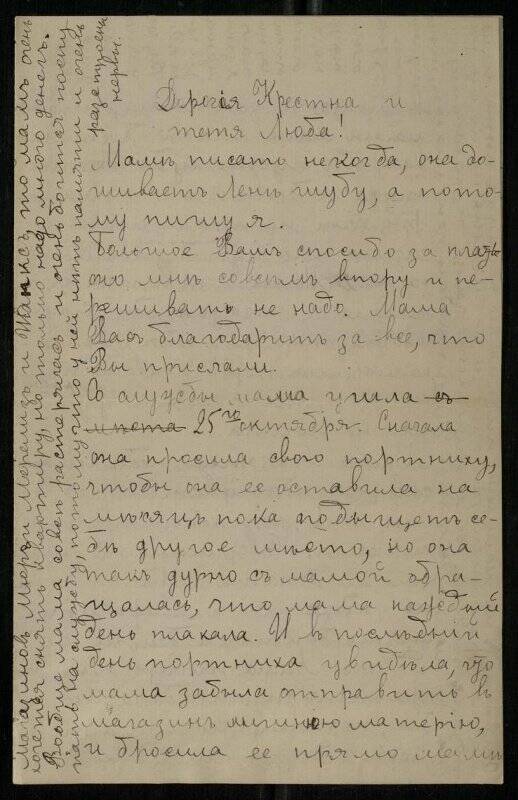 Дрогія Крестна и
тетя Люба!
Мамѣ писать некогда, она до-
шиваетъ Ленѣ шубу, а пото-
му пишу я.
Большое Вамъ спосибо за платье
оно мнѣ совсѣмъ впору и пе-
решивать не надо. Мама
Васъ благодаритъ за все, что
Вы прислали.
Съ службы мама ушла съ
мѣста 25го октября. Сначала
она просила свою портниху,
чтобы она ее оставила на
мѣсяцъ пока подыщетъ се-
бѣ другое мѣсто, но она
такъ дурно съ мамой обра-
щалась, что мама каждый
день плакала. И въ послѣдній
день портниха увидѣла, что
мама забыла отправить въ
магазинъ лишнюю матерію,
и бросила ее прямо мамѣ
магазиновъ Мюръ и Мерилизъ и
то мамъ очень
хочется снять квартиру, но только надо много денегъ.
Вообще мама совсѣ растерялась и очень боится посту
пать на службу, потому что у ней нѣтъ памяти и очень
разстроены
нервы.